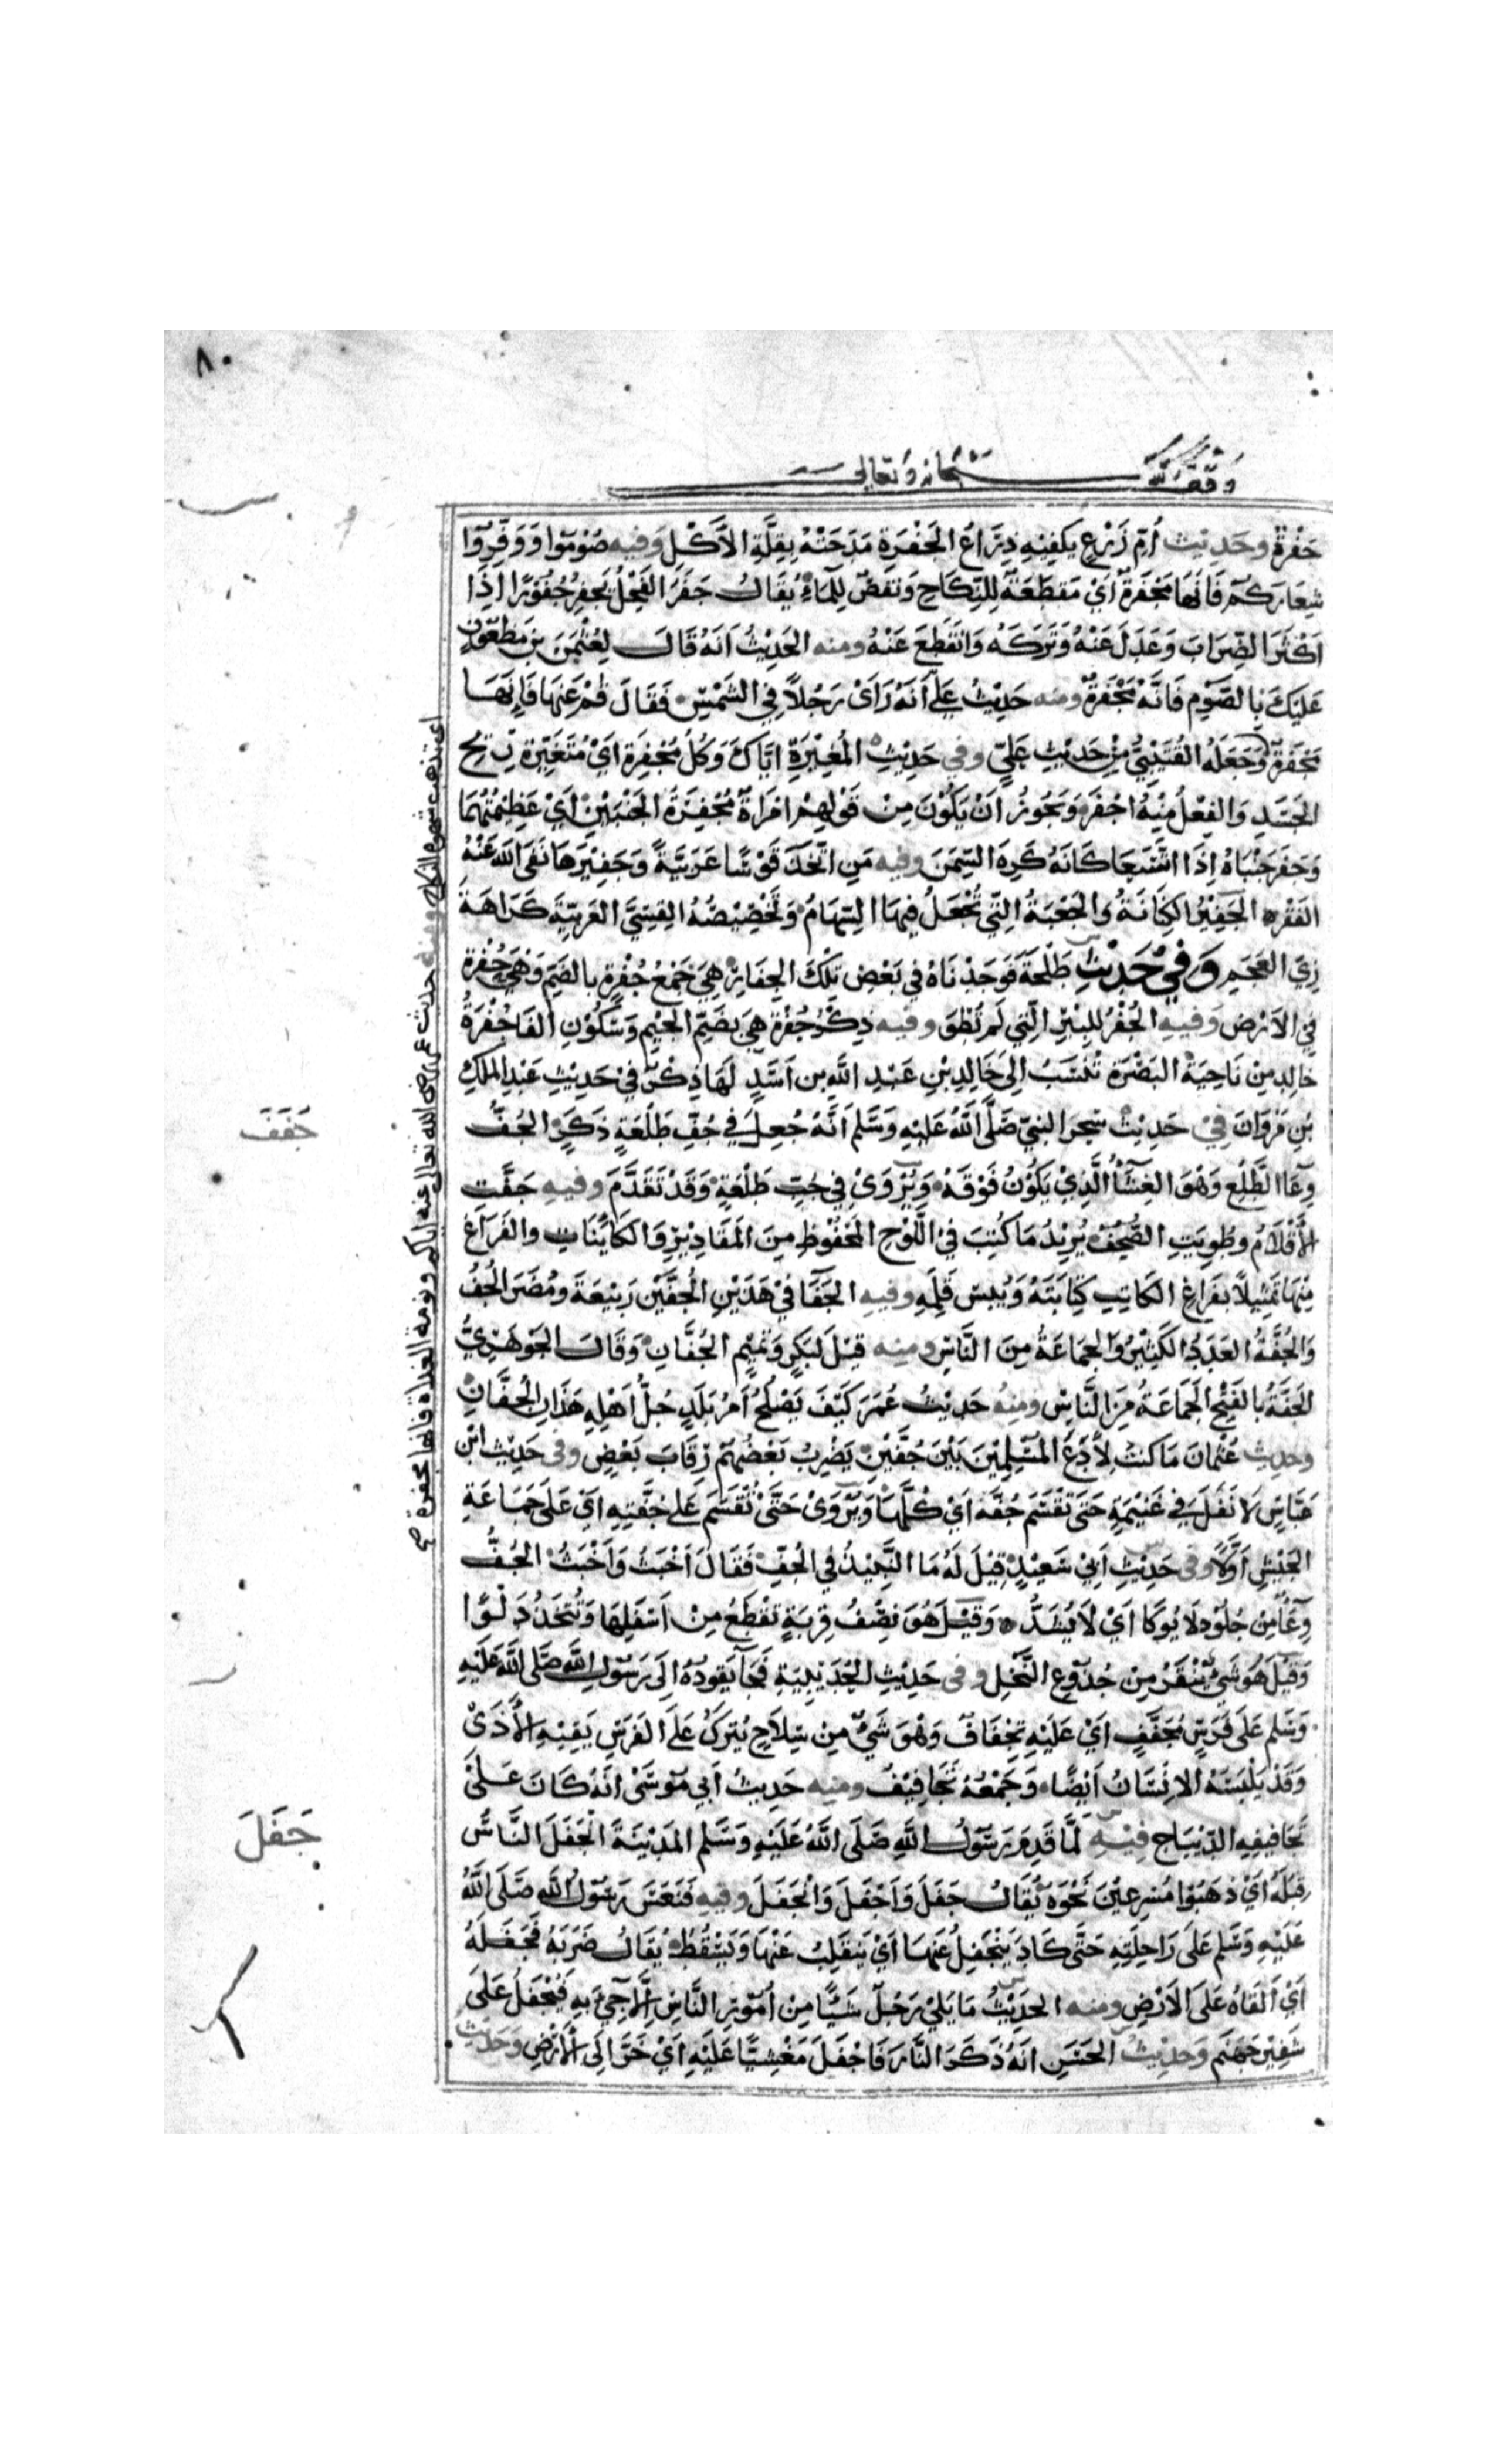 ٨٠
وقف لله سبحانه وتعالى
جَفْرَةٌ وحَدِيث أُمّ زَرْعٍ يَكْفِيْهِ ذِرَاعُ الجَفْرَةِ مَدَحَتْهُ بِقِلَّةِ الأَكْلِ وفيه صُوْمُوا وَوَفِّرُوا
شِعَارَكُم فَانَّهَا مَجْفَرَةٌ اَيْ مَقطَعَةٌ لِلنِّكَاحِ وَنَقصٌ لِلْمَاءِ يُقَالُ جَفَرَ الفَحْلُ يَجفِرُ جُفُوْرًا اِذَا
اَكْثَرَ الضِّرَابَ وَعَدَلَ عَنْهُ وَتَرَكَهُ وَانقَطَعَ عَنْهُ ومنه الحَدِيْثُ اَنَّهُ قَالَ لِعُثْمٰنَ بنِ مَظعُونٍ
عَلَيكَ بِالصَّوْمِ فَانَّهُ مَجْفَرَةٌ ومنه حَدِيْثُ عَلِيٍّ اَنَّهُ رَاَى رَجُلاً فِي الشَّمْسِ فَقَالَ قُمْ عَنهَا فَاِنَّهَا
مَجْفَرَةٌ وَجَعَلَهُ القُتَيْبِيُّ مِنْ حَدِيْثِ عَلِيٍّ وفي حَدِيْثِ المُغِيْرَةِ ايَّاكَ وَكُلَّ مُجْفِرَةٍ اَيْ مُتَغَيِّرَةِ رِيْحِ
الجَسَدِ وَالفِعْلُ مِنْهُ اجْفَرَ وَيَجُوزُ اَنْ يَكُوْنَ مِنْ قَوْلِهِمْ امْرَاَةٌ مُجْفِرَةُ الجَنْبَيْنِ اَيْ عَظِيْمَتُهُمَا
وَجَفَرَ جَنْبَاهُ اِذَا اتَّسَعَا كَانَهُ كَرِهَ السِّمَنَ وفيه مَنِ اتَّخَذَ قَوْسًا عَرَبِيَّةً وَجَفِيْرَهَا نَفَى اللهُ عَنْهُ
الفَقْرَ الجَفِيْرُ الكِنَانَةُ والجَعْبَةُ الَّتِي تُجْعَلُ فِيهَا السِّهَامُ وَتَخْصِيْصُهُ القِسِيَّ العَرَبِيَّةَ كَرَاهَةَ
زِيِّ العَجَمِ وَفِيْ حَدِيْثِ طَلْحَةَ فَوَجَدْنَاهُ فِي بَعْضِ تِلْكَ الجِفَارِ هِيَ جَمْعُ جُفْرَةٍ بالضَمِّ وَهِيَ حُفْرَةٌ
فِي الاَرْضِ وَفيه الجُفْرُ للبِئْرِ الَّتِي لَمْ تُطْوَ وفيه ذِكْرُ جُفْرَةَ هِيَ بِضَمِّ الجِيْمِ وَسُكُوْنِ الفَا جُفْرَةُ
خالِدٍ مِنْ نَاحِيَةِ البَصْرَةِ تُنْسَبُ اِلىَ خَالِدِ بْنِ عَبْدِ اللهِ بن اَسَدٍ لَهَا ذِكْرٌ فِيْ حَدِيْثِ عَبْدِ المَلكِ
بْنِ مَرْوَانَ فِيْ حَدِيْثِ سِحرِ النبيّ صَلَّى اللهُ عَلَيْهِ وَسَلَّم اَنَّهُ جُعِلَ فِي جُفِّ طَلْعَةٍ ذَكَرٍ الجُفُّ
وِعَآا الطَّلْعِ وَهْوَ الغِشَاُ الَّذِيْ يَكُوْنُ فَوْقَهُ وَيُرْوَى فِي جُبِّ طَلْعَةٍ وَقَدْ تَقَدَّمَ وفيه جَفَّتِ
الأَقْلَامُ وطُوِيَتِ الصُّحُفُ يُرِيْدُ مَا كُتِبَ فِي اللَّوْحِ المَحْفُوْظِ مِنَ المَقَادِيْرِ وَالكَايِنَاتِ والفَرَاغَ
مِنْهَا تَمْثِيْلاً بفَرَاغِ الكَاتِبِ كِتَابَتَهُ وَيُبسِ قَلَمِهِ وفيه الجَفَا فِيْ هَذَيْنِ الجُفَّيْنِ رَبِيْعَةَ وَمُضَرَ الجُفُّ
وَالجُفَّةُ العَدَدُ الكَثِيْرُ وَالجَمَاعَةُ مِنَ النَّاسِ ومنه قِيْلَ لِبَكرٍ وَتَمِيْمٍ الجُفَّانِ وَقَالَ الجَوهَرِيُّ
الجَفَّةُ بالفَتْحِ الجَمَاعَةُ مِنَ النَّاسِ ومنه حَدِيْثُ عُمَرَ كَيْفَ يَصْلُحُ اَمْرُ بَلَدٍ جُلُّ اَهْلِهِ هَذَانِ الجُفَّانِ
وحديث عُثْمَانَ مَا كُنتُ لِأَدَعَ المُسْلِمِيْنَ بَيْنَ جُفَّيْنِ يَضْرِبُ بَعْضُهُمْ رِقَابَ بَعْضٍ وفى حَدِيْثِ ابْنِ
عَبَّاسٍ لَا نَفَلَ فِي غَنِيْمَةٍ حَتّىَ تُقْسَمَ جُفَّةً اَيْ كُلَّهَا وَيُرْوَى حَتَّى تُقْسَمَ عَلى جُفَّتِهِ اَيْ عَلَى جَمَاعَةِ
الجَيْشِ اَوَّلاً وفى حَدِيْثِ اَبِيْ سَعِيْدٍ قِيْلَ لَهُ مَا النَّبِيْذُ فِي الجُفِّ فَقَالَ اَخْبَثُ وَاَخْبَثُ الجُفُّ
وِعَاٌ مِنْ جُلُوْدٍ لَا يُوكَا اَيْ لَا يُشَدُّ وَقِيْلَ هُوَ نِصْفُ قِربَةٍ تُقْطَعُ مِنْ اَسْفَلِهَا وَتُتَّخَذُ دَلْوًا
وَقِيْلَ هُوَ شَيْ يُنْقَرُ مِنْ جُذُوْعِ النَّخْلِ وفى حَدِيْثِ الحُدَيْبِيَةِ فَجَا يَقُودُهُ اِلَى رَسُوْلِ اللهِ صَلَّى اللهُ عَلَيْهِ
وَسَلم عَلَى فَرَسٍ مُجَفَّفٍ اَيْ عَلَيْهِ تِجْفَافٌ وَهْوَ شَيْ مِنْ سِلَاحٍ يُتركُ عَلَى الفَرَسِ يَقِيْهِ الأَذَىْ
وَقَدْ يَلْبَسُهُ الاِنْسَانُ اَيْضًا وَجَمْعُهُ تَجَافِيْفُ ومنه حَدِيْثُ اَبِي مُوْسَى انَّهُ كَانَ عَلىَ
تَجَافِيفِهِ الدِّيْبَاج فِيْهِ لَمَّا قَدِمَ رَسُوْلُ اللهِ صَلَى اللهُ عَلَيْهِ وَسَلَّم المَدِيْنَةَ انْجَفَلَ النَّاسُ
قِبَلَهُ اَيْ ذهَبُوْا مُسْرِعِيْنَ نَحْوَهُ يُقَالُ جَفَلَ وَاَجْفَلَ وَانْجَفَلَ وفيه فَنَعَسَ رَسُوْلُ اللهِ صَلَى اللهُ
عَلَيْهِ وَسَلَّم عَلَى رَاحِلَتِهِ حَتَّى كَادَ يَنْجَفِلُ عَنهَا اَيْ يَنقَلِبُ عَنْهَا وَيَسْقُطُ يُقَالُ ضَرَبَهُ فَجَفَلَهُ
اَيْ اَلقَاهُ عَلَى الاَرْضِ ومنه الحَدِيْثُ مَا يَلِيْ رَجُلٌ شَيًّا مِنْ اُمُوْرِ النَّاسِ اِلَّا جِيْءَ بِهِ فَيُجْفَلُ عَلَى
شَفِيْرِ جَهَنَّم وَحَدِيْثُ الحَسَنِ اَنهُ ذَكَرَ النَّارَ فَاجْفَلَ مَغْشِيًّا عَلَيْهِ اَيْ خَرَّ اِلَى الأَرْضِ وَحَدِيْث
اى تذهب شهوة النكاح ومنه حديث عمر رضى الله تعالى عنه اياكم ونومة الغداة فانها مجفرة صح
جَفَفَ
جَفَلَ